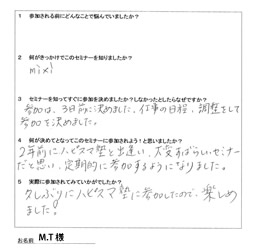 1 参加される前にどんなことで悩んでいましたか？
2 何がきっかけでこのセミナーを知りましたか？
mixi
3 セミナーを知ってすぐに参加を決めましたか？しなかったとしたらなぜですか？
参加は、3日前に決めました。仕事の日程、調整をして
参加を決めました。
4 何が決めてとなってこのセミナーに参加されようと思いましたか？
2年前にハピスマ塾と出逢い、大変すばらしいセミナー
だと思い、定期的に参加するようになりました。
5 実際に参加されてみていかがでしたか？
久しぶりにハピスマ塾に参加したので、楽しめ
ました！
お名前 M.T 様